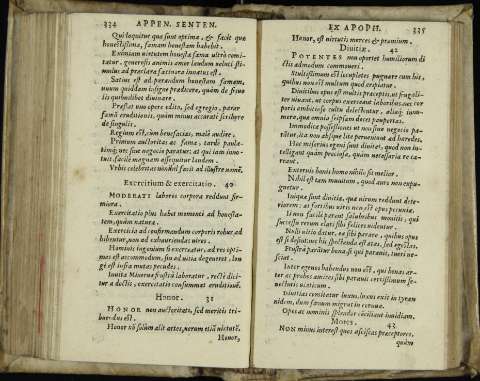 334 APPEN. SENTEN.
Qui loquitur quæ sunt optima, & facit quæ
honestissima, famam honestam habebit.
Eximiam virtutem honesta fama vltrò comi-
tatur. generosis animis amor laudum veluti sti-
mulus ad præclara facinora innatus est.
Satius est ad parandum honestam famam,
vnum quiddam insigne prædicere, quàm de singu-
lis quibuslibet diuinare.
Præstat vno opere edito, sed egregio, parar
famā eruditionis, quàm minus accuratè scribere
de singulis.
Regium est, cùm benefacias, malè audire.
Primùm auctoritas ac fama, tardè paula-
timq́; nec sine negotio paratur: at qui iam inno-
tuit, facilè magnam assequitur laudem.
Vrbis celebritas nihil facit ad illustre nomē.
Exercitium & exercitatio. 40
MODERATI labores corpora reddunt fir-
miora.
Exercitatio plus habet momenti ad honesta-
tem, quàm natura.
Exercitia ad confirmandum corporis robur ad-
hibentur, non ad exhauriendas vires.
Hominis ingenium si exerceatur, ad res opti-
mas est accommodum, sin ad vitia degeneret, lon-
gè est infra mutas pecudes.
Inuita Minerua frustrà laboratur, rectè dici-
tur à doctis, exercitatio consummat eruditionē.
Honor. 31
HONOR non auctoritati, sed meritis tri-
buendus est.
Honor nō solùm alit artes, verùm etiā virtutē.
Honor,
EX APOPH. 335
Honor, est virtutis merces & præmium.
Diuitiæ. 42
POTENTES non oportet humiliorum di-
ctis admodum commoueri.
Stultissimum est locupletes pugnare cum his,
quibus non est multum quod eripiatur.
Diuitibus opus est multis præceptis, vt frugali-
ter viuant, vt corpus exerceant laboribus, nec cor-
poris ambitioso cultu delectentur, aliaq́; innu-
mera, quæ omnia seipsam docet paupertas.
Immodicæ possessiones vt non sine negotio pa-
rantur, ita non absque lite perueniunt ad hæredes.
Hoc miseriis egent sunt diuites, quòd non in-
telligunt quàm preciosa, quàm necessaria re ca-
reant.
Externis bonis homo nihilo fit melior.
Nihil est tam munitum, quod auro non expu-
gnetur.
Iniquæ sunt diuitiæ, quæ virum reddunt dete-
riorem: at fortibus viris non est opus pecunia.
Ii non facilè parent salubribus monitis, qui
successu rerum clari sibi felices videntur.
Nolli vitio datur, rē sibi parare, quibus opus
est: si desit, vnus his spectanda est ætas, sed egestas.
Frustrà paràtur bona si qui parauit, iis vti ne-
sciat.
Inter egenos habendus non est, qui bonas ar-
tes ac probos amicos sibi parauit certissimum se-
nectutis viaticum.
Diuitias comitatur luxus, luxus exit in tyran-
nidem,
Opes ac nominis splendor conciliant inuidiam.
Mores. 43
NON minus interest quos asciscas præceptores,
quàm